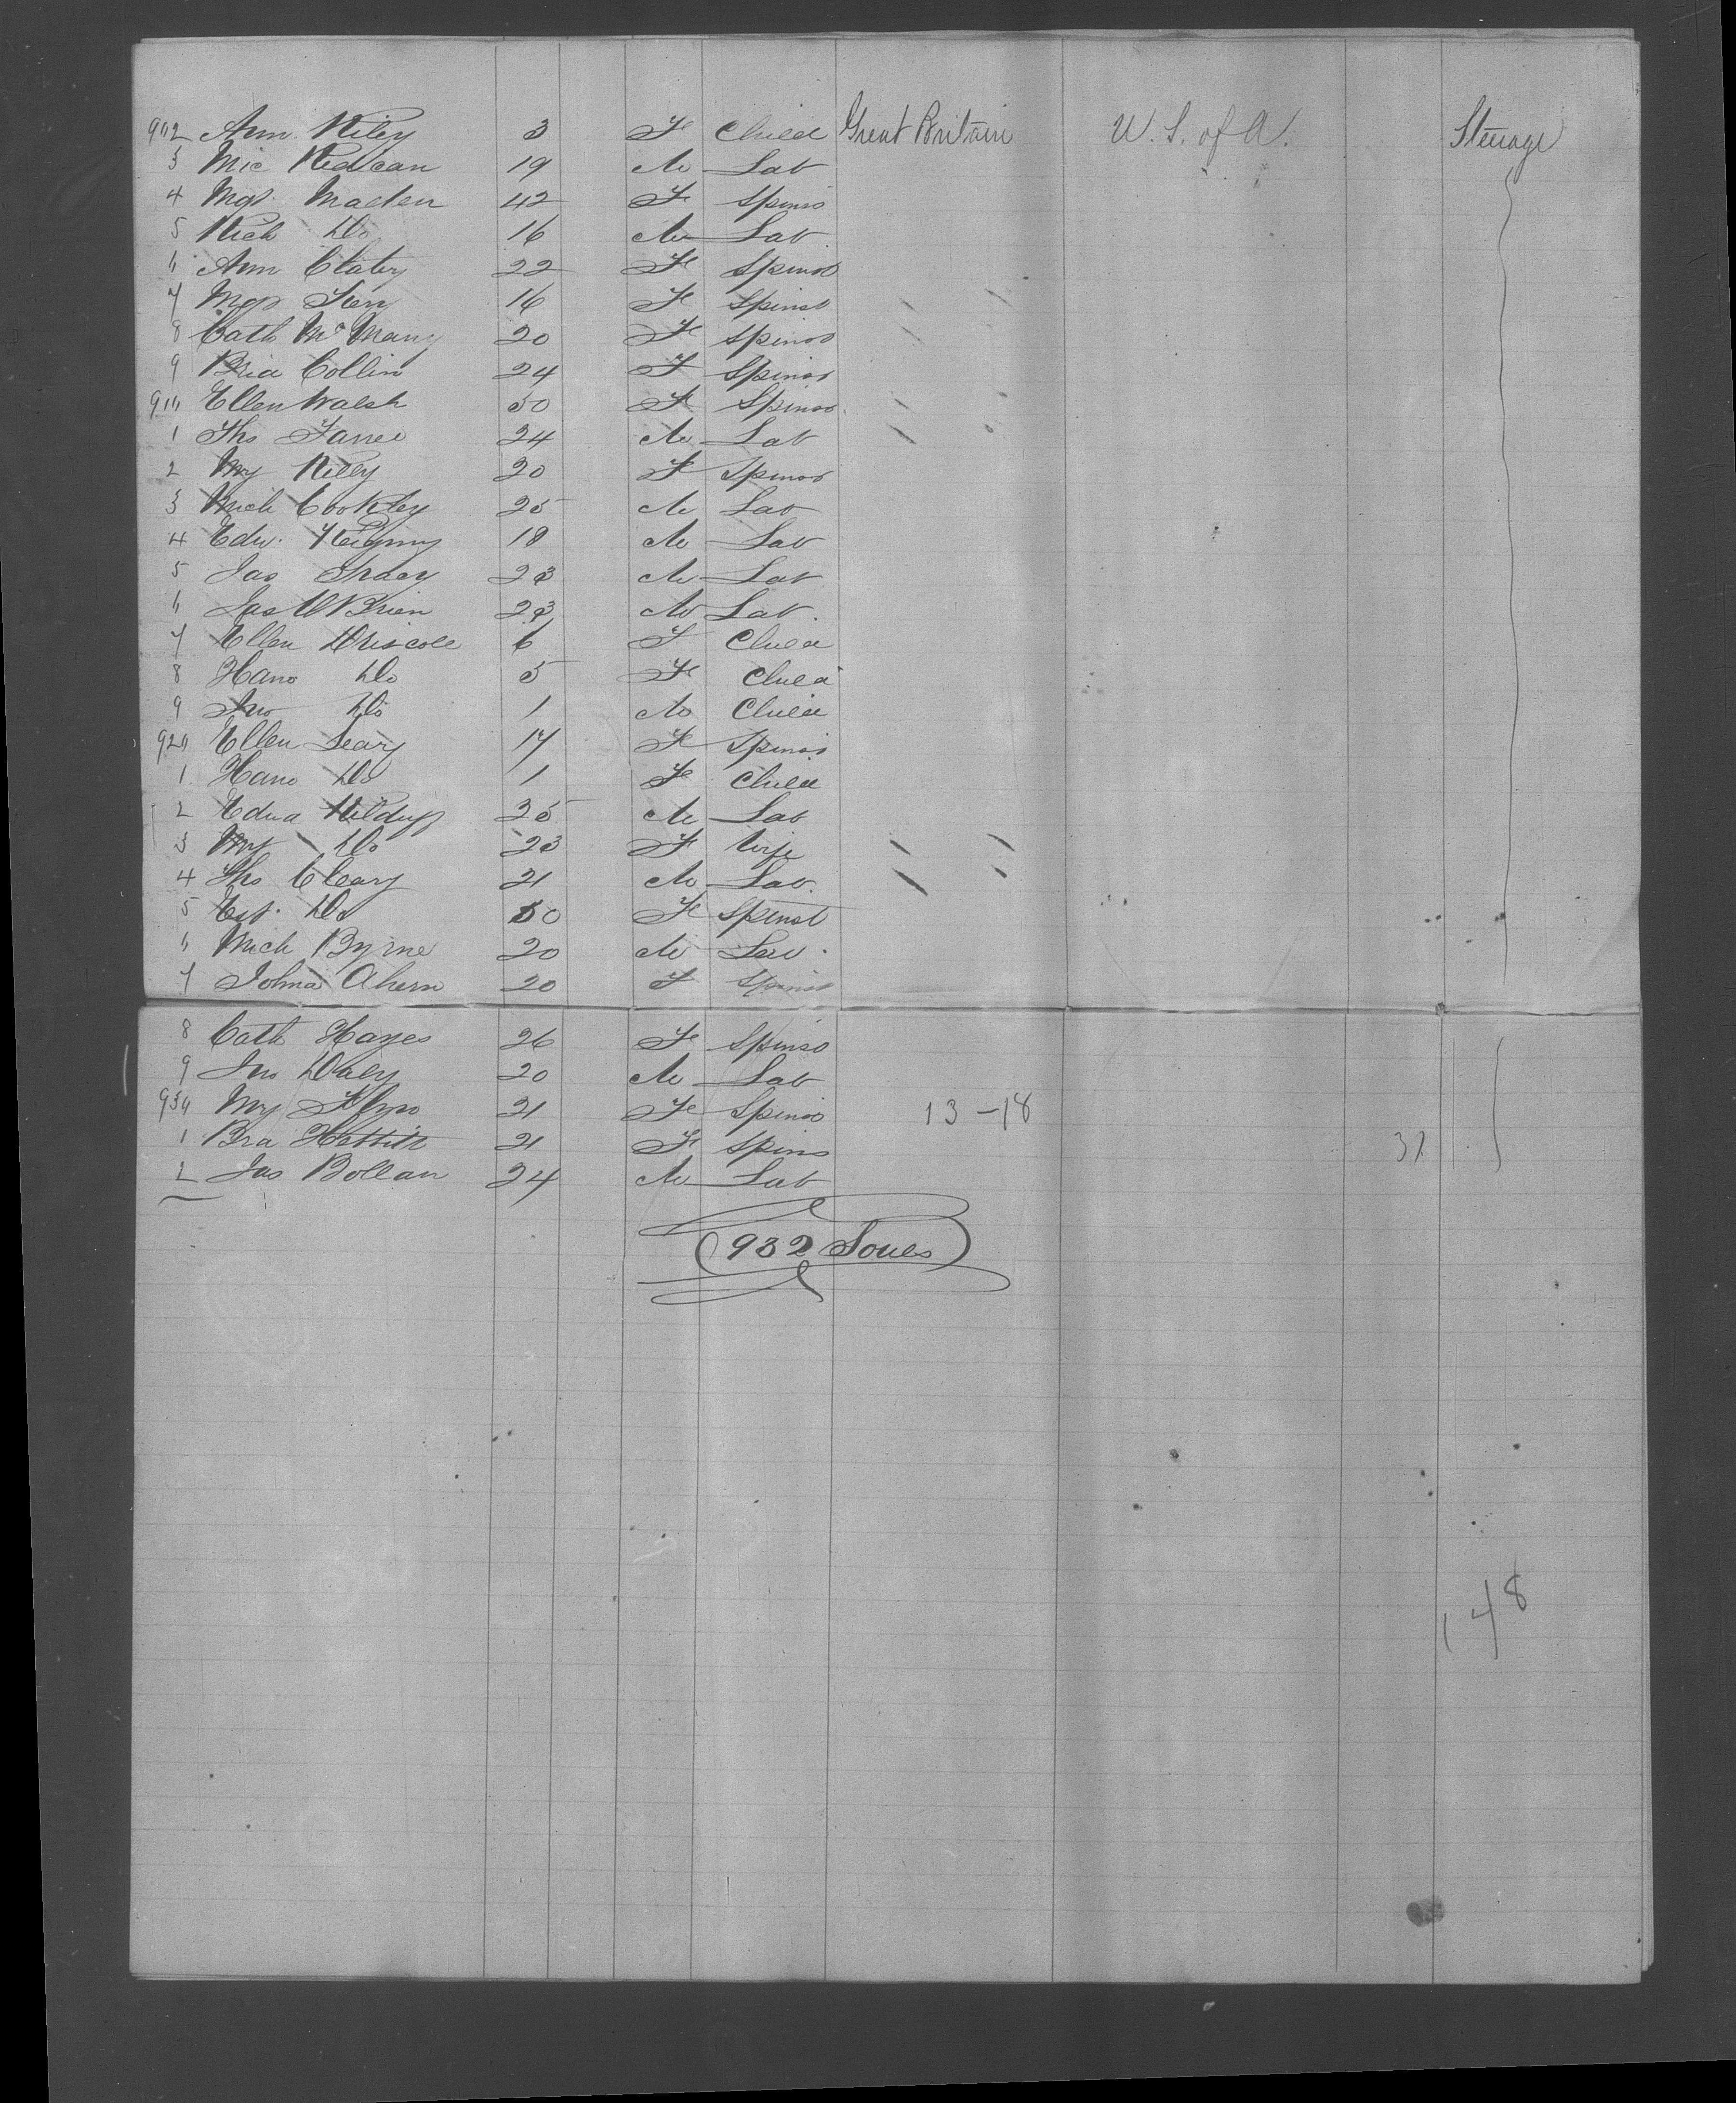 902 Ann Riley 3 F Child Great Britain U. S. of A. Steerage
3 Mic Redican 19 M Lab
4 Mgt Maden 42 F Spins
5 Rich Do 16 M Lab
6 Ann Clatey 22 F Spinst
7 Mgt 16 F Spinst
8 Cath Mc Many 20 F Spinst
9 Brid Collin 24 F Spinst
910 Ellen Walsh 50 F Spinst
1 Ths 24 M Lab
2 My Rilly 20 F Spinst
3 Mich Cookley 25 M Lab
4 Edw. 18 M Lab
5 Jas Tracy 23 M Lab
6 Jas O'Brien 23 M Lab
7 Ellen Driscole 6 F Child
8 Hano Do 5 F Child
9 Jno Do 1 M Child
920 Ellen Leary 17 F Spinst
1 Hano Do 1 F Child
2 Edwd 35 M Lab
3 My Do 23 F Wife
4 Ths Cleary 21 M Lab
5 Do 50 F Spinst
6 Mich Byrne 20 M Lab
7 Johna Ahern 20 F Spinst
8 Cath Hayes 26 F Spinst
9 Jno Daly 20 M Lab
930 My 21 F Spinst 13-18
1 Brd 21 F Spins 31
2 Jas Bollan 24 M Lab
(932 Souls)
148